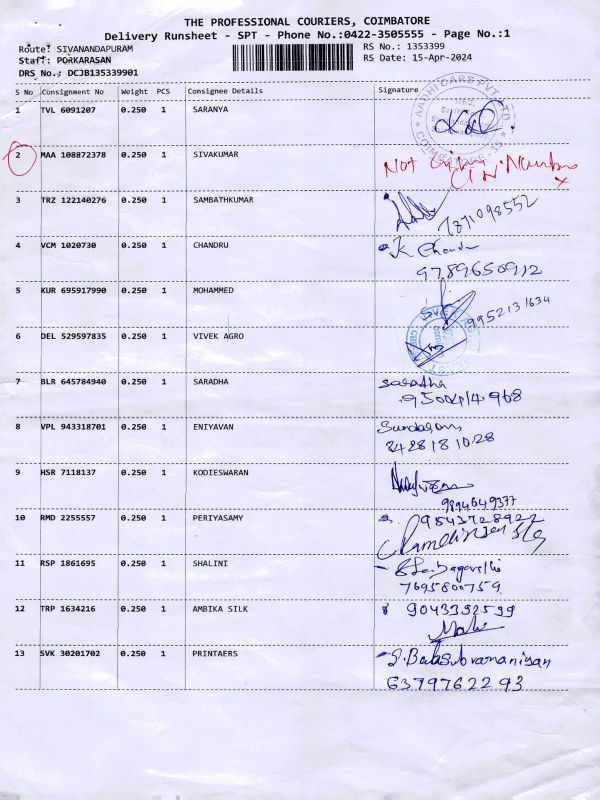 THE PROFESSIONAL COURIERS, COIMBATORE
Delivery Runsheet - SPT - Phone No.:0422-3505555 - Page No.:1
Route: SIVANANDAPURAM
RS No.: 1353399
Staff: PORKARASAN
RS Date: 15-Apr-2024
DRS No.: DCJB135339901
S No Consignment No Weight PCS Consignee Details Signature
1 TVL 6091207 0.250 1 SARANYA
AADHI CARS PVT LTD.
COIMBATORE-35
2 MAA 108872378 0.250 1 SIVAKUMAR Not Number
3 TRZ 122140276 0.250 1 SAMBATHKUMAR
7871098552
4 VCM 1020730 0.250 1 CHANDRU K Chandru
9789650912
5 KUR 695917990 0.250 1 MOHAMMED
9952131634
6 DEL 529597835 0.250 1 VIVEK AGRO
7 BLR 645784940 0.250 1 SARADHA saradha
9500414968
8 VPL 943318701 0.250 1 ENIYAVAN Sundaram
8428181028
9 HSR 7118137 0.250 1 KODIESWARAN
9894649377
10 RMD 2255557 0.250 1 PERIYASAMY 9843728922
11 RSP 1861695 0.250 1 SHALINI
7695800759
12 TRP 1634216 0.250 1 AMBIKA SILK 9043392599
13 SVK 30201702 0.250 1 PRINTAERS S. Balasubramaniyan
6379762293